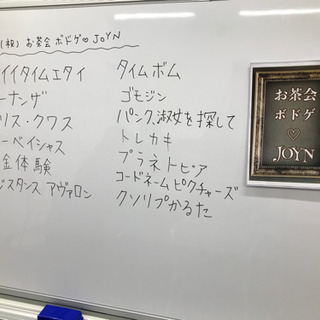 (秋) お茶会 ボドゲ♡JOYN
イイタイムエタイ
ーナンザ
リス・クワス
ーペイシャス
金体験
ジスタンス アヴァロン
タイムボム
ゴモジン
パンク、淑女を探して
トレカキ
プラネトピア
コードネームピクチャーズ
クソリプかるた
お茶会
ボドゲ
♡
JOYN